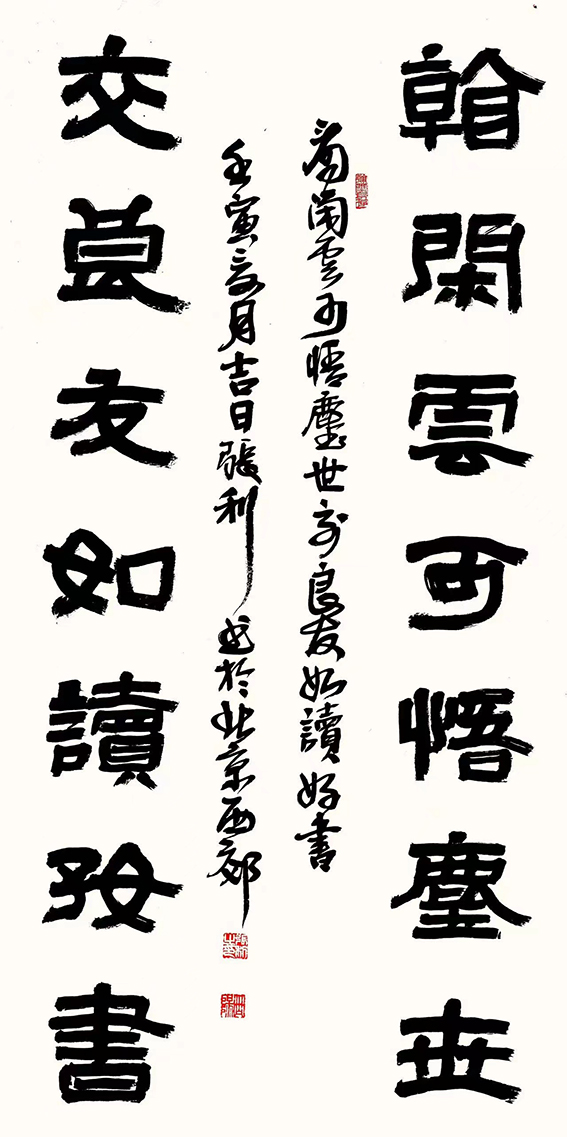 看閑雲可悟塵世
看閑雲可悟塵世交良友如讀好書
壬寅夏月吉日張利書於北京西郊
交良友如讀好書